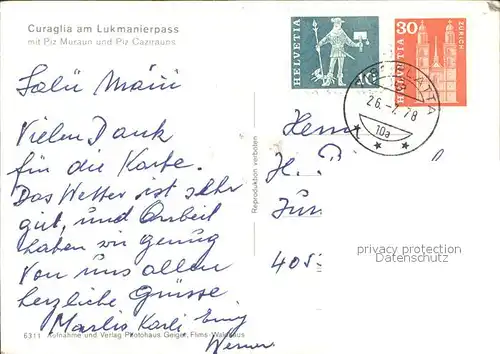 Curaglia am Lukmanierpass
mit Piz Muraun und Piz Cazirauns
Salü Mäni
Vielen Dank
für die Karte.
Das Wetter ist sehr
gut, und Arbeit
haben wir genug
Von uns allen
herzliche Grüsse
Marlis Karli Emig
Werner
6311 Aufnahme und Verlag Photohaus Geiger, Flims-Waldhaus
Reproduktion verboten
HELVETIA
10
HELVETIA
30
ZÜRICH
PLATTA
26.-7.78
10a
Herrn
H.
405
privacy protection
Datenschutz